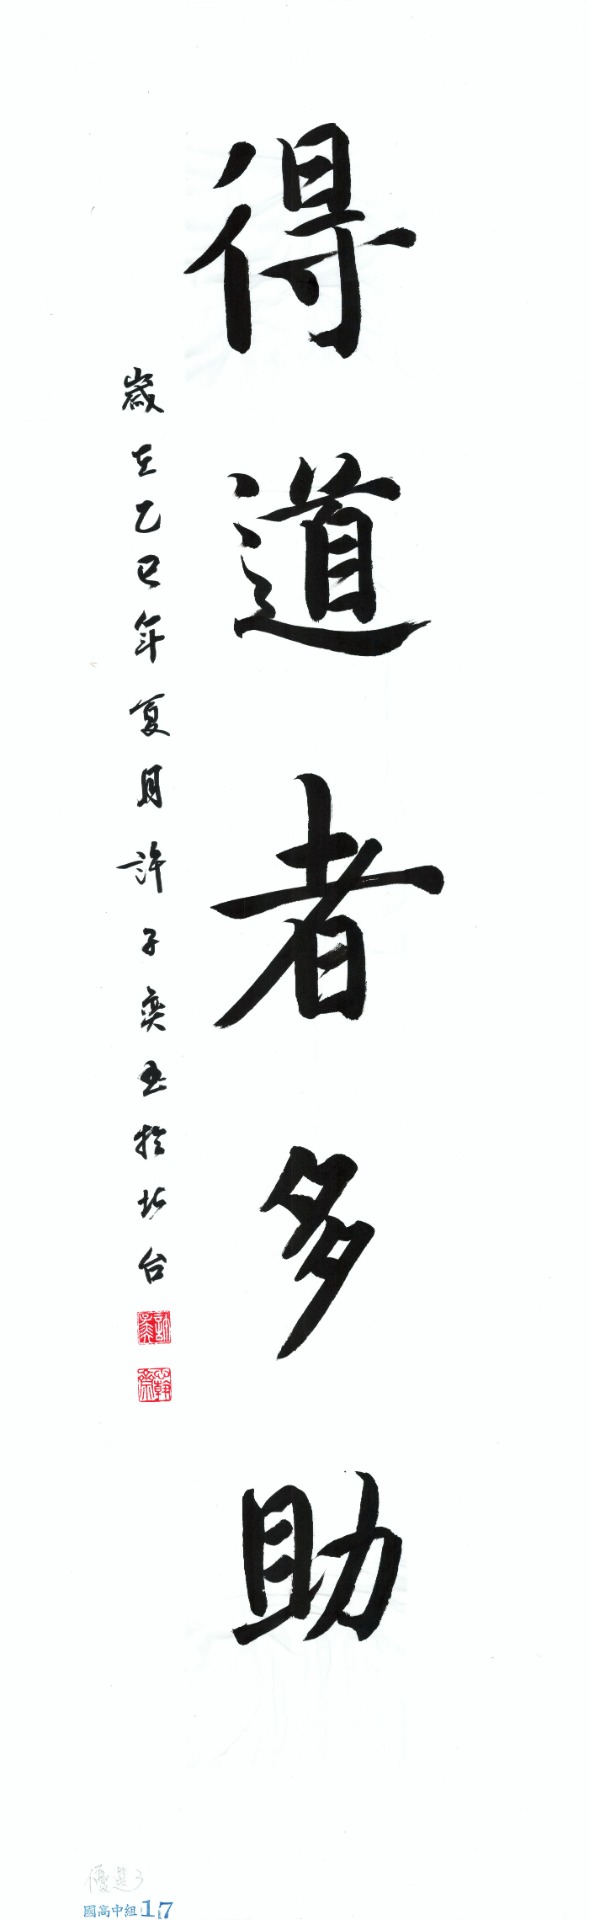 得道者多助
歲在乙巳年夏月許子奕書於北台
優選3
國高中組17